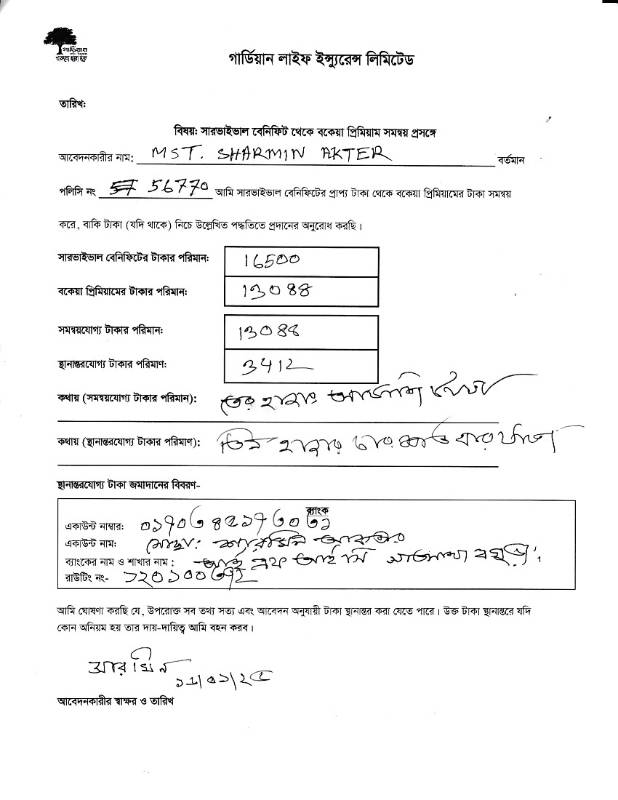 গার্ডিয়ান লাইফ ইন্স্যুরেন্স লিমিটেড
তারিখ:
বিষয়: সারভাইভাল বেনিফিট থেকে বকেয়া প্রিমিয়াম সমন্বয় প্রসঙ্গে
আবেদনকারীর নাম: MST. SHARMIN AKTER বর্তমান
পলিসি নং 56770 আমি সারভাইভাল বেনিফিটের প্রাপ্য টাকা থেকে বকেয়া প্রিমিয়ামের টাকা সমন্বয়
করে, বাকি টাকা (যদি থাকে) নিচে উল্লেখিত পদ্ধতিতে প্রদানের অনুরোধ করছি।
সারভাইভাল বেনিফিটের টাকার পরিমান: 16500
বকেয়া প্রিমিয়ামের টাকার পরিমান: 13088
সমন্বয়যোগ্য টাকার পরিমান: 13088
স্থানান্তরযোগ্য টাকার পরিমাণ: 3412
কথায় (সমন্বয়যোগ্য টাকার পরিমান): তের হাজার আটাশি টাকা
কথায় (স্থানান্তরযোগ্য টাকার পরিমাণ): তিন হাজার চারশত বার টাকা
স্থানান্তরযোগ্য টাকা জমাদানের বিবরণ-
ব্যাংক
একাউন্ট নাম্বার:
একাউন্ট নাম: মোছা: শারমিন আকতার
ব্যাংকের নাম ও শাখার নাম: আই এফ আই সি
রাউটিং নং-
আমি ঘোষণা করছি যে, উপরোক্ত সব তথ্য সত্য এবং আবেদন অনুযায়ী টাকা স্থানান্তর করা যেতে পারে। উক্ত টাকা স্থানান্তরে যদি
কোন অনিয়ম হয় তার দায়-দায়িত্ব আমি বহন করব।
আবেদনকারীর স্বাক্ষর ও তারিখ